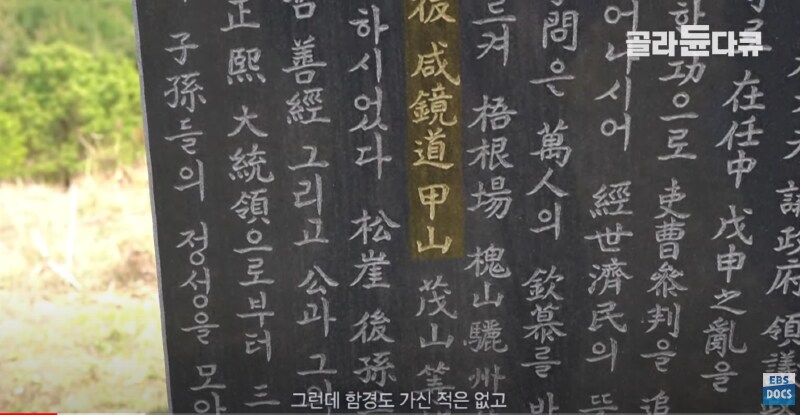 골라듄다큐
夫 議政府領議
在任中 戊申之亂을
功으로 吏曹參判을 追
어나시어 經世濟民의
問은 萬人의 欽慕를
르켜 梧根場 槐山驪州
咸鏡道甲山 茂山等
하시었다 松崖 後孫
善經 그리고 公과 그
正熙 大統領으로부터 三
子孫들의 정성을 모아
그런데 함경도 가신 적은 없고
EBS
DOCS